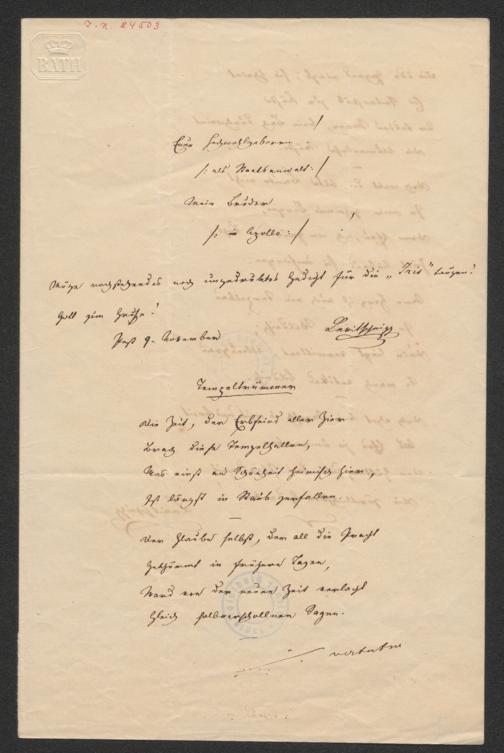 I.N. 84503
BATH
Euer Hochwohlgeboren
/: als Staatsanwalt :/
Mein Bruder
/: in Apollo :/
Möge nachstehendes noch ungedrucktes Gedicht für die „Iris“ taugen!
Gott zum Gruße!
Pest 9. November
Levitschnigg
Tempeltrümmer
Die Zeit, der Erbfeind aller Zier
Brach diese Tempelhallen,
Was einst an Schönheit heimisch hier,
Ist längst in Staub zerfallen.
Der Glaube selbst, der all die Pracht
Gethürmt in frühern Tagen,
Ward von der neuen Zeit verlacht
Gleich halbverschollnen Sagen.